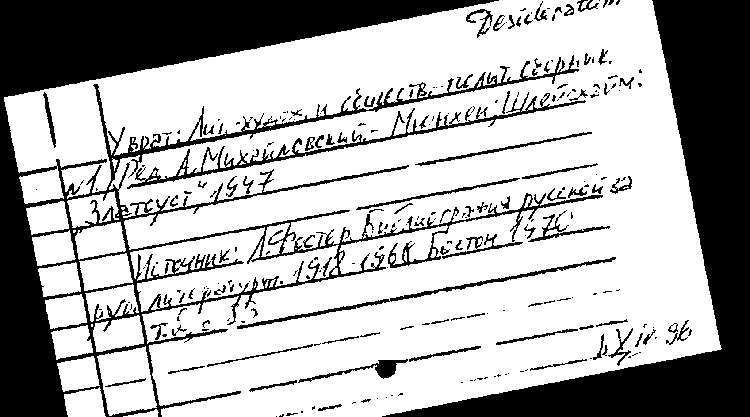 Desideratum
У врат: Лит.-худож. и обществ.-полит. сборник.
№1 / Ред. А. Михайловский.- Мюнхен; Шлейсхайм:
"Златоуст", 1947
Источник: Л. Фостер. Библиография русской за
руб. литературы. 1918-1968. Бостон 1970
т. с.